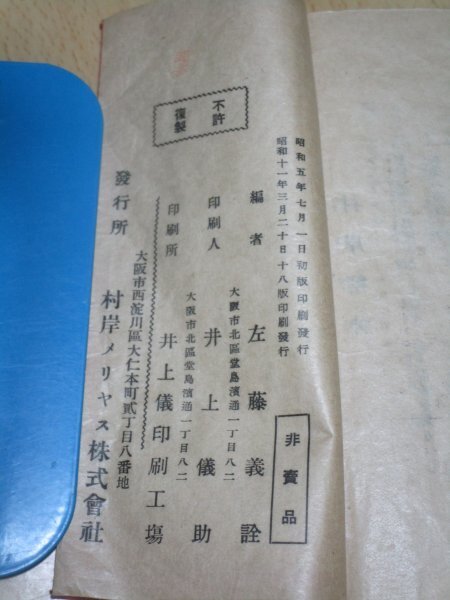 昭和五年七月一日初版印刷發行
昭和十一年三月二十日十八版印刷發行
非賣品
編者
大阪市北區堂島濱通一丁目八二
左藤義詮
印刷人
大阪市北區堂島濱通一丁目八二
井上儀助
印刷所
井上儀印刷工場
不許
複製
發行所
大阪市西淀川區大仁本町貳丁目八番地
村岸メリヤス株式會社